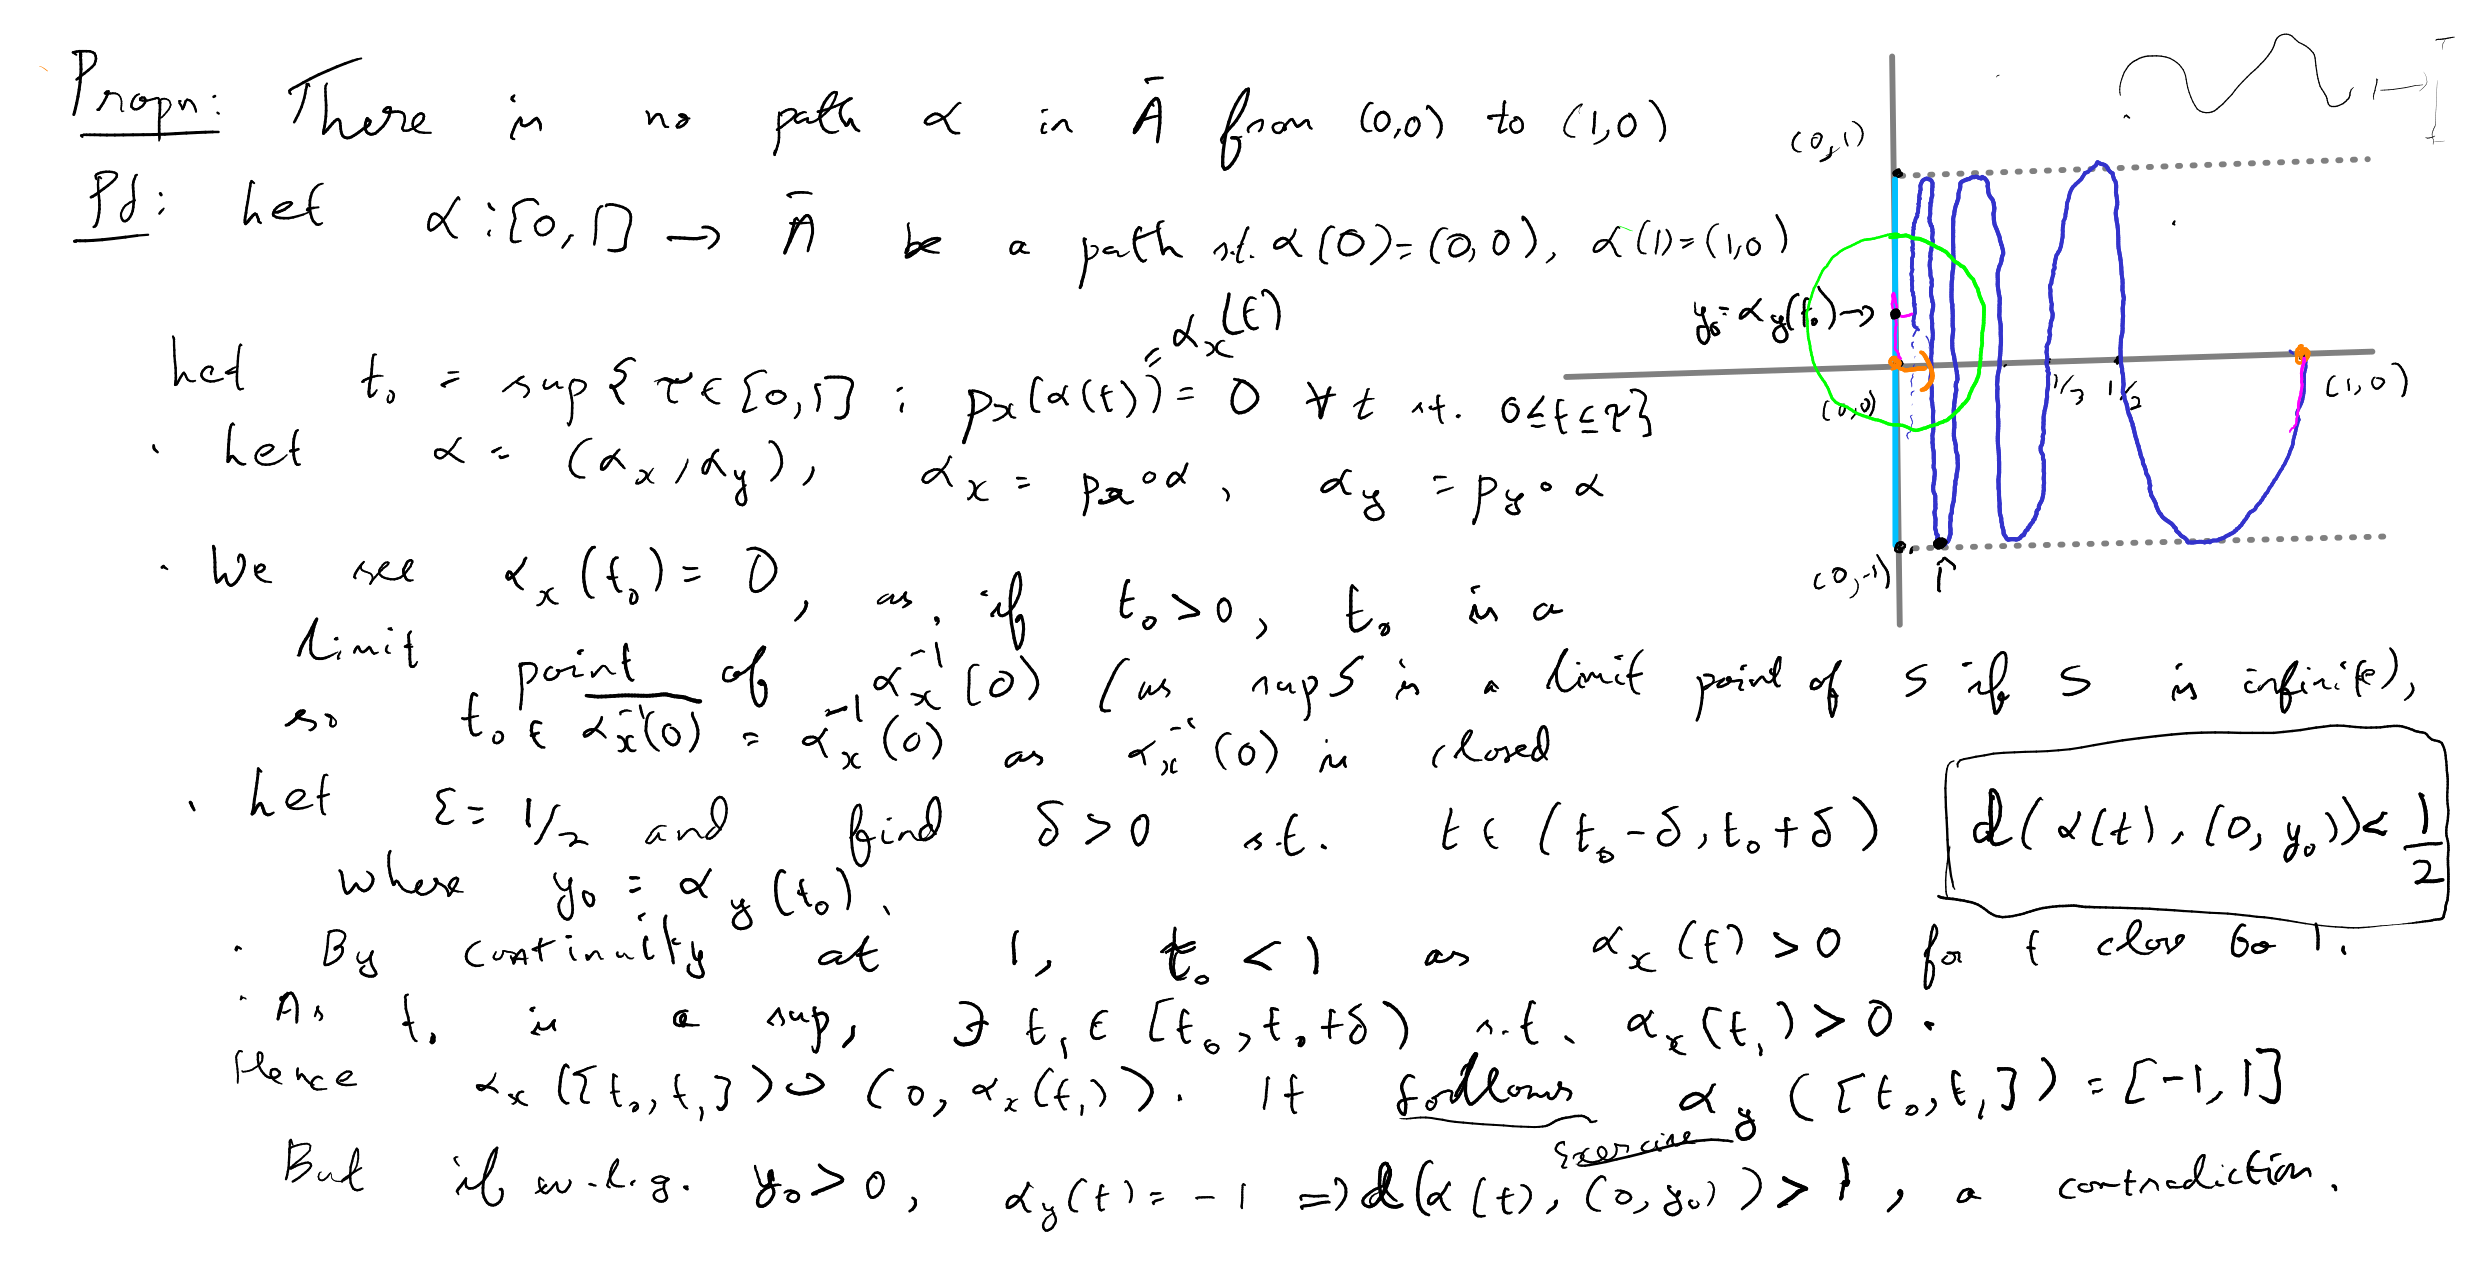 Propn: There is no path α in Ā from (0,0) to (1,0)
Pf: Let α:[0,1] → Ā be a path s.t. α(0)=(0,0), α(1)=(1,0)
Let t₀ = sup{τ∈[0,1] : pₓ(α(t)) = 0 ∀ t s.t. 0≤t≤τ}
= αₓ(t)
· Let α = (αₓ, α_y), αₓ = pₓ∘α, α_y = p_y∘α
· We see αₓ(t₀) = 0, as, if t₀>0, t₀ is a
limit point of αₓ⁻¹(0) (as sup S is a limit point of S if S is infinite),
so t₀ ∈ \overline{αₓ⁻¹(0)} = αₓ⁻¹(0) as αₓ⁻¹(0) is closed
· Let ε = 1/2 and find δ>0 s.t. t∈(t₀-δ, t₀+δ) d(α(t), (0,y₀)) < 1/2
where y₀ = α_y(t₀).
· By continuity at 1, t₀ < 1 as αₓ(t) > 0 for t close to 1.
· As t₀ is a sup, ∃ t₁ ∈ [t₀, t₀+δ) s.t. αₓ(t₁) > 0.
Hence αₓ([t₀,t₁]) ⊃ (0, αₓ(t₁)). It follows α_y([t₀,t₁]) = [-1,1]
Exercise
But if w.l.g. y₀>0, α_y(t) = -1 ⇒ d(α(t), (0,y₀)) > 1, a contradiction.
(0,1)
y₀=α_y(t₀) →
(0,0)
1/3
1/2
(1,0)
(0,-1)
↑